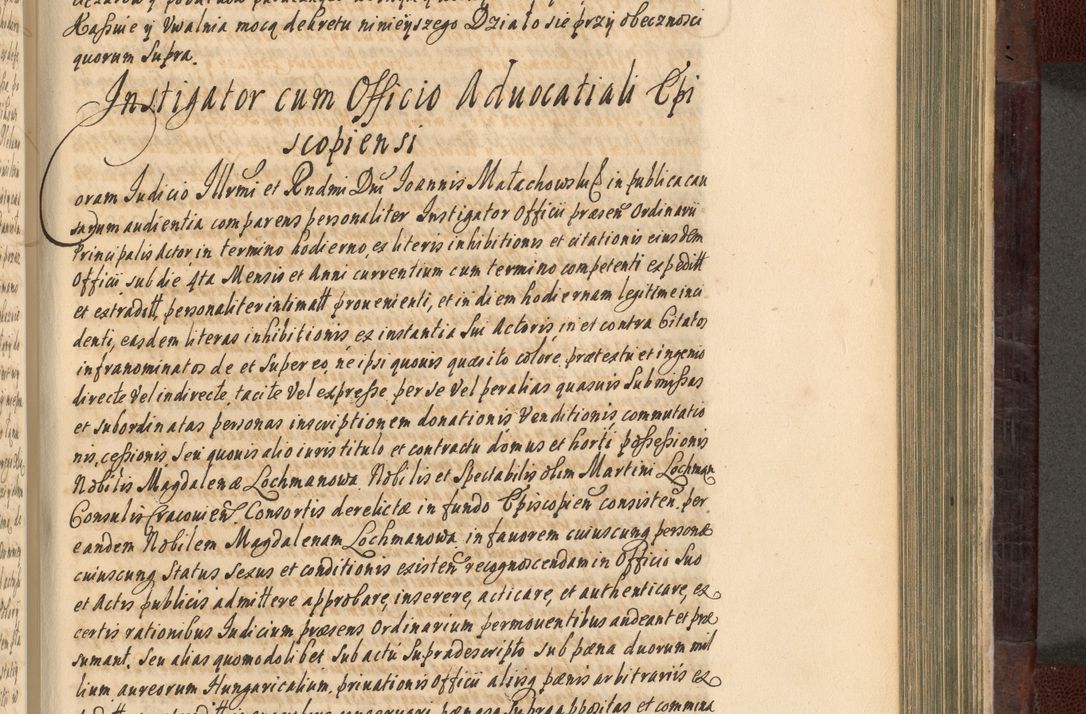 Kassuie y Uwalnia mocą dekretu ninieyszego Działo sie przy obecznosci
quorum Supra.
Instigator cum Officio Aduocatiali Epi
scopiensi
Coram Judicio Illrmi et Rndmi Dni Joannis Małachowski in publica cau
sarum audientia comparens personaliter Instigator Officii præsen Ordinarii
Principalis Actor in termino hodierno, ex literis inhibitionis et citationis eiusdem
Officii sub die 4ta Mensis et Anni currentium cum termino competenti expeditt
et extraditt, personaliter intimatt prouenienti, et in diem hodiernam legittime inci
denti, easdem literas inhibitionis ex instantia Sui Actoris, in et contra Citatos
infranominatos de et super eo, ne ipsi quouis quæsito colore prætextu et ingenio
directe vel indirecte, tacite vel expresse, per se vel per alias quasuis Submissas
et Subordinatas personas inscriptionem donationis Venditionis commutatio
nis, cessionis, Seu quouis alio iuris titulo et contractu domus et horti possessionis
Nobilis Magdalenæ Lochmanowa Nobilis et Spectabilis olim Martini Lochman
Consulis Cracouien. Consortis derelictæ in fundo Episcopien consisten, per
eandem Nobilem Magdalenam Lochmanowa in fauorem cuiuscunq personæ
cuiuscunq Status Sexus et conditionis existen recognoscendam in Officio Suo
et Actis publicis admittere approbare, inserere, acticare, et authenticare, ex
certis rationibus Iudicium præsens Ordinarium permouentibus audeant et præ
sumant. Seu alias quomodolibet Sub actu Supradescripto sub pæna duorum mil
lium aureorum Hungaricalium, priuationis Officii aliisq pænis arbitrariis ex